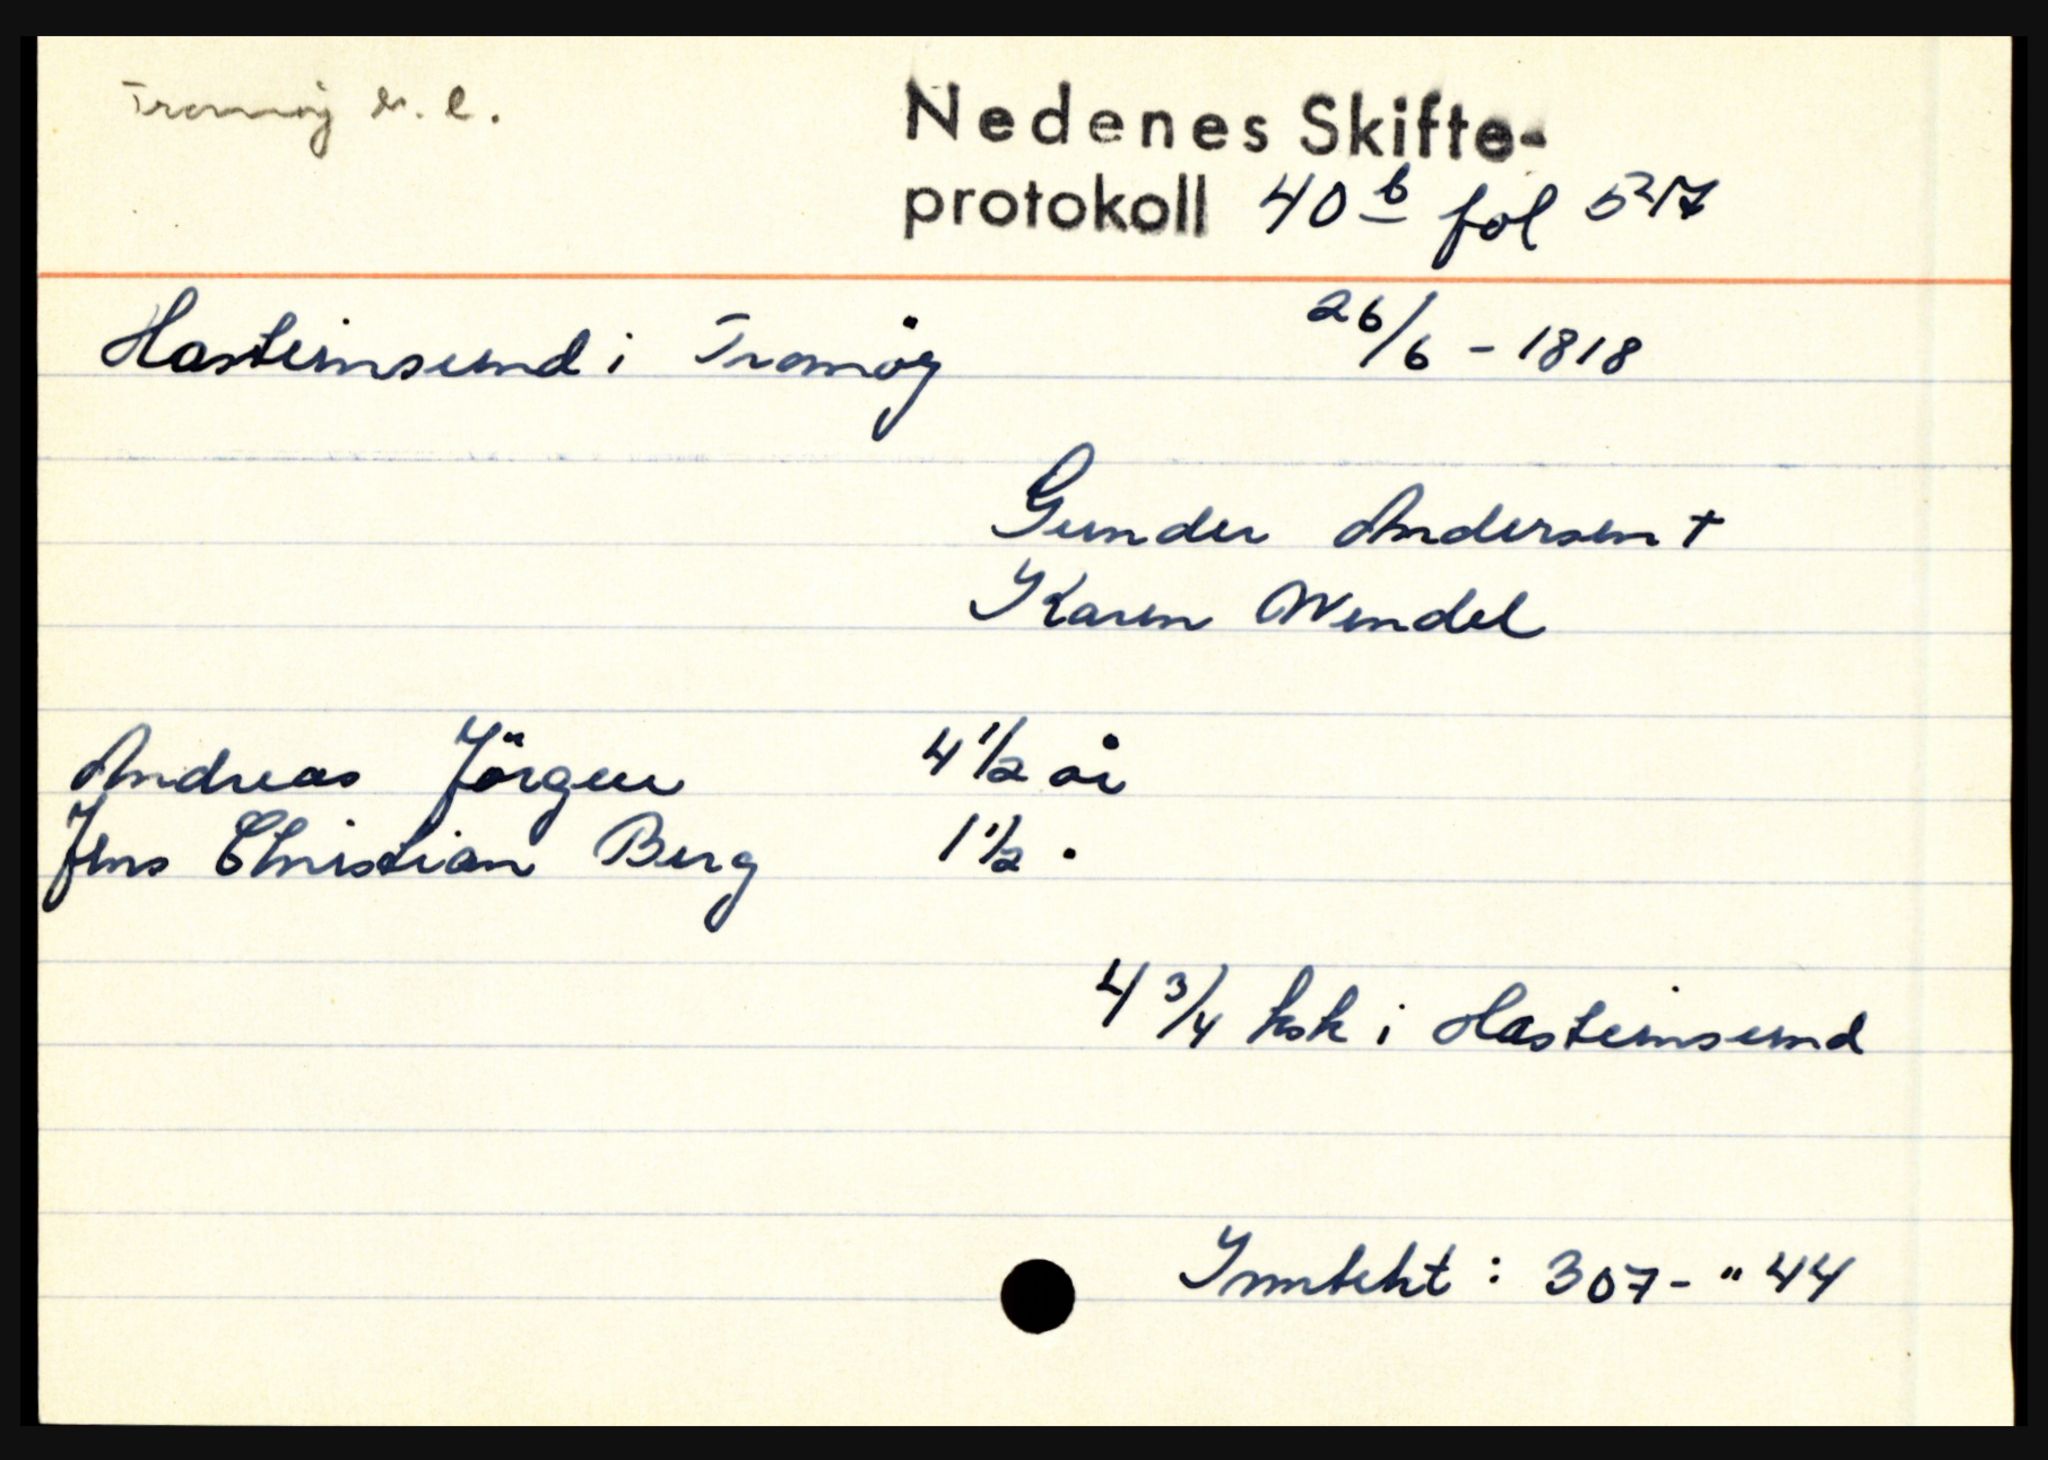 Tromöy s. l.
Nedenes Skifte-
protokoll 40 b fol 527
Hasteinsund i Tromöy 26/6 - 1818
Gunder Andersen +
Karen Wendel
Andreas Jörgen 4 1/2 år
Jens Christian Berg 1 1/2 .
4 3/4 ksk i Hasteinsund
Inntekt : 307- " 44